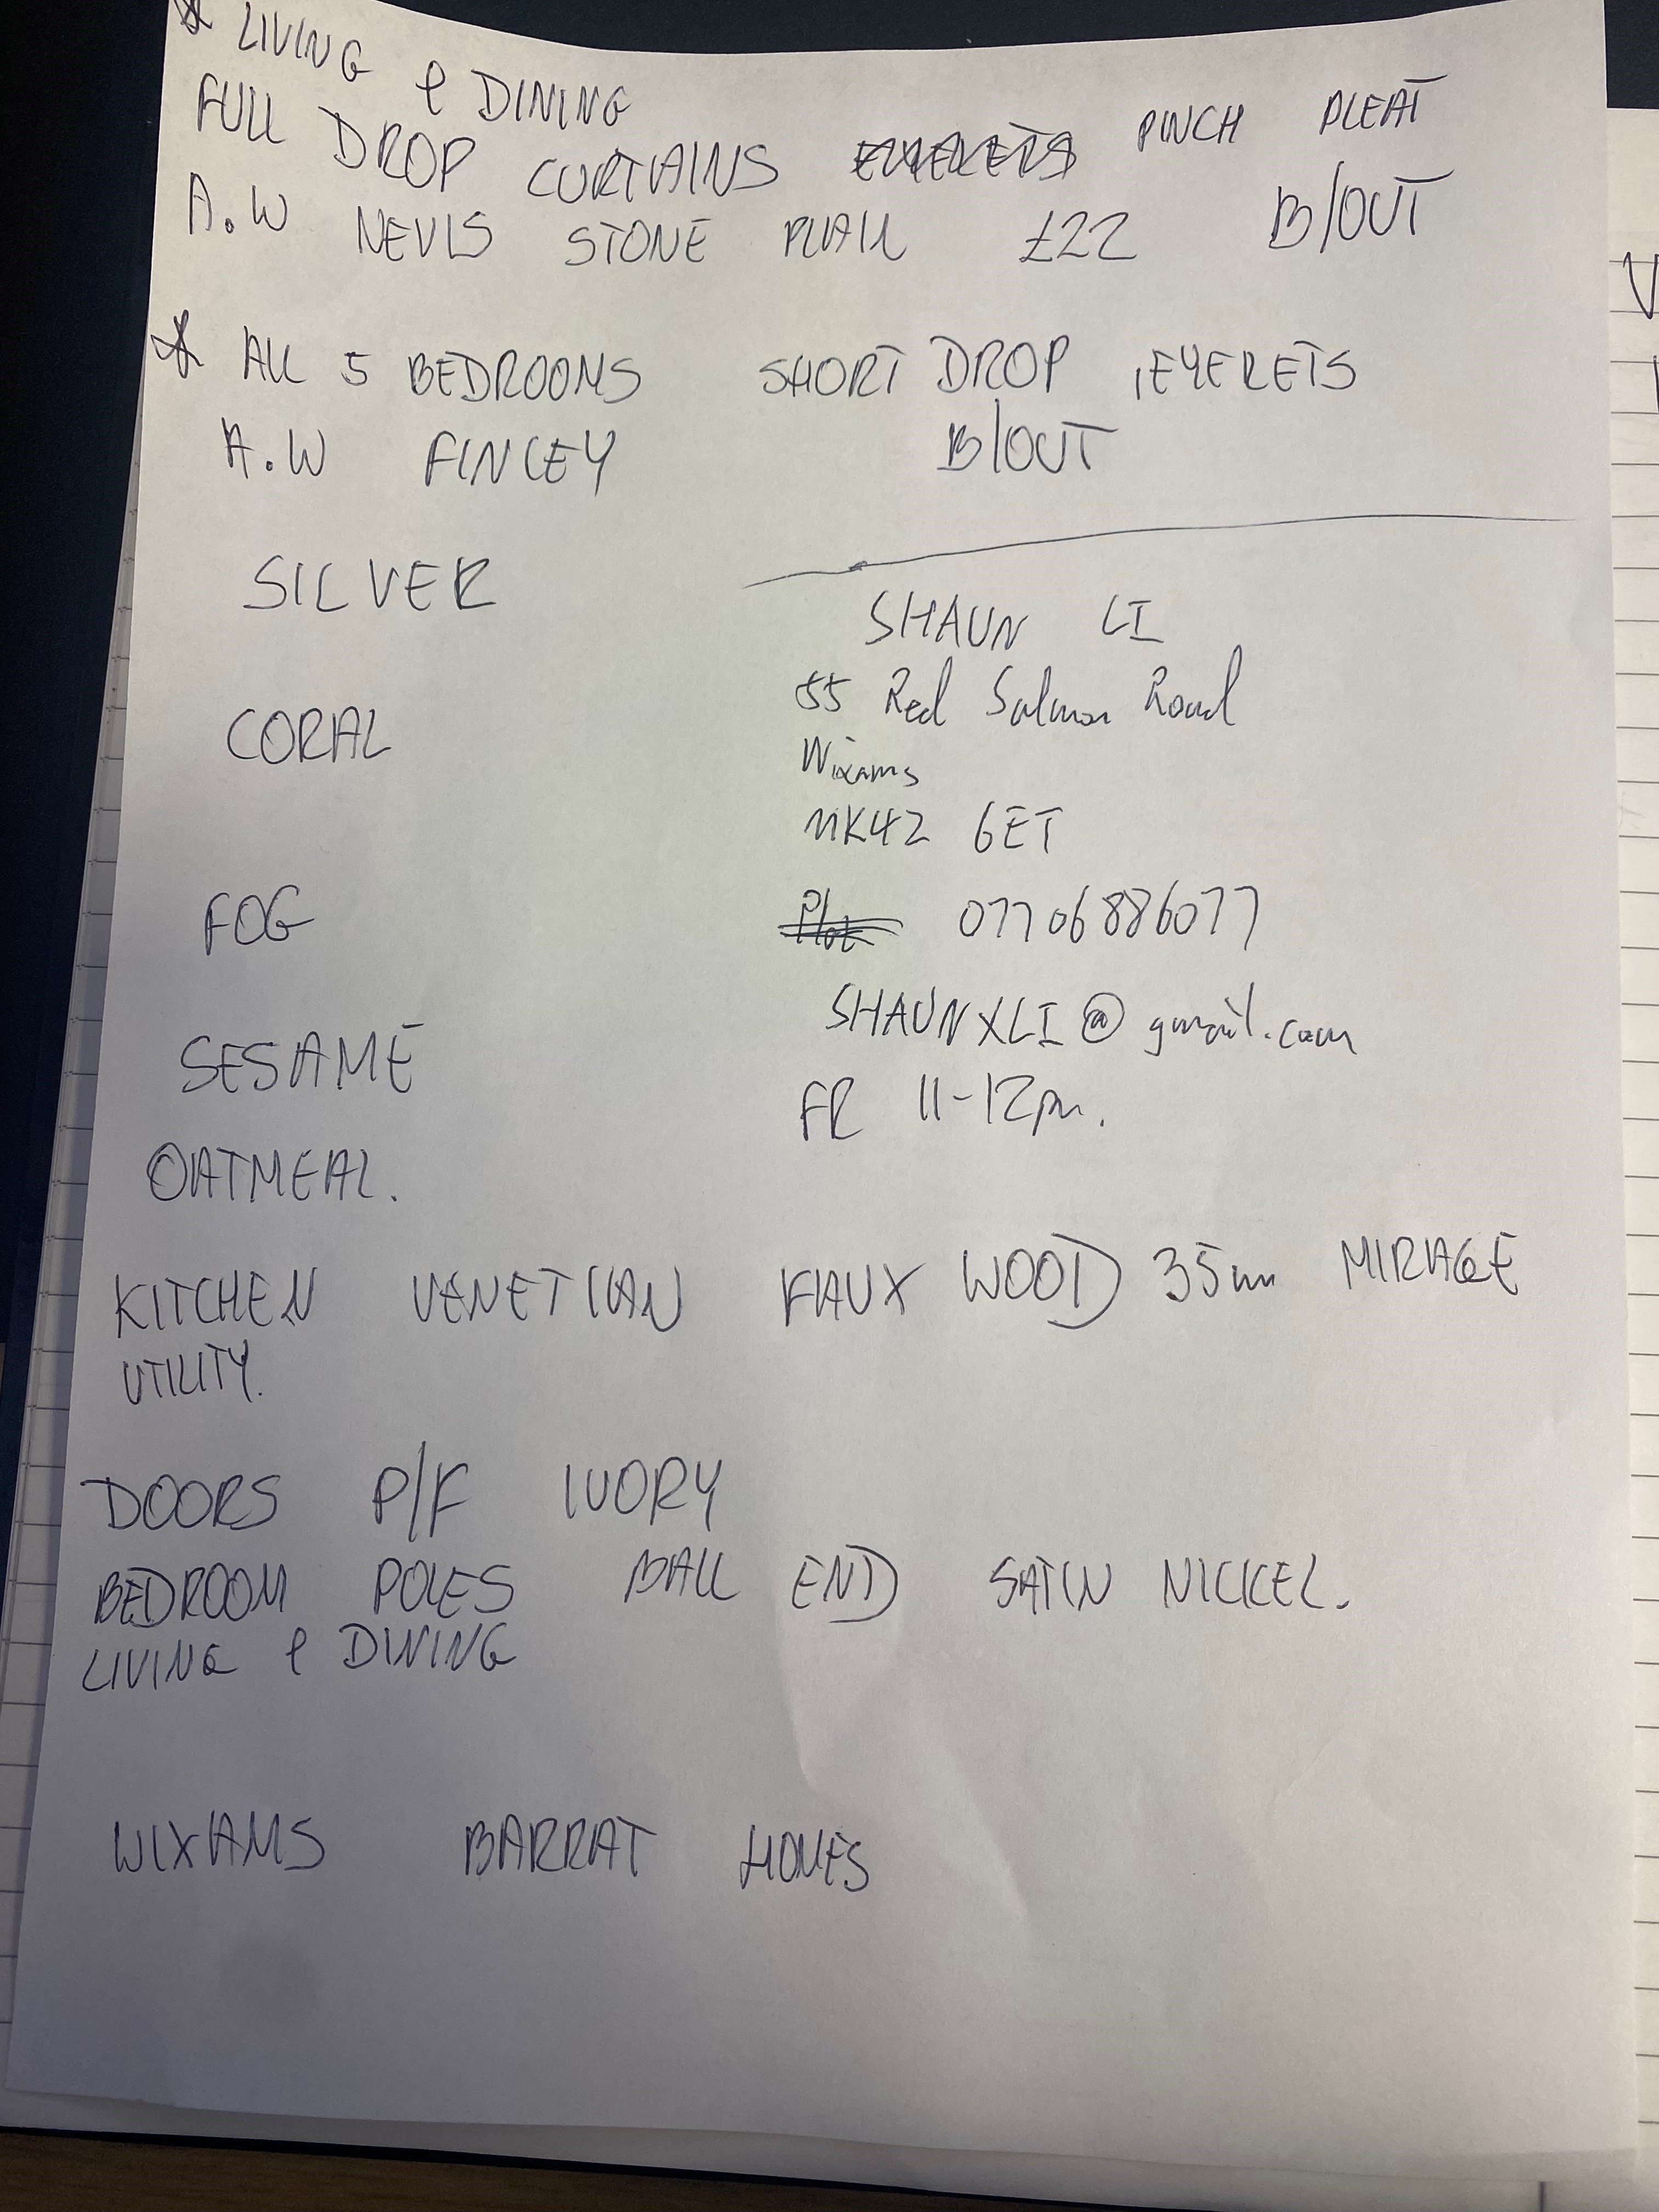 * LIVING & DINING
FULL DROP CURTAINS EYELETS PINCH PLEAT
A.W NEVIS STONE PLAIN £22 B/OUT
* ALL 5 BEDROOMS SHORT DROP EYELETS
A.W FINLEY B/OUT
SILVER
CORAL
FOG
SESAME
OATMEAL.
SHAUN LI
55 Red Salmon Road
Wixams
MK42 6ET
Plot 07706886077
SHAUNXLI@gmail.com
FR 11-12pm.
KITCHEN VENETIAN FAUX WOOD 35mm MIRAGE
UTILITY.
DOORS P/F IVORY
BEDROOM POLES BALL END SATIN NICKEL.
LIVING & DINING
WIXAMS BARRAT HOMES